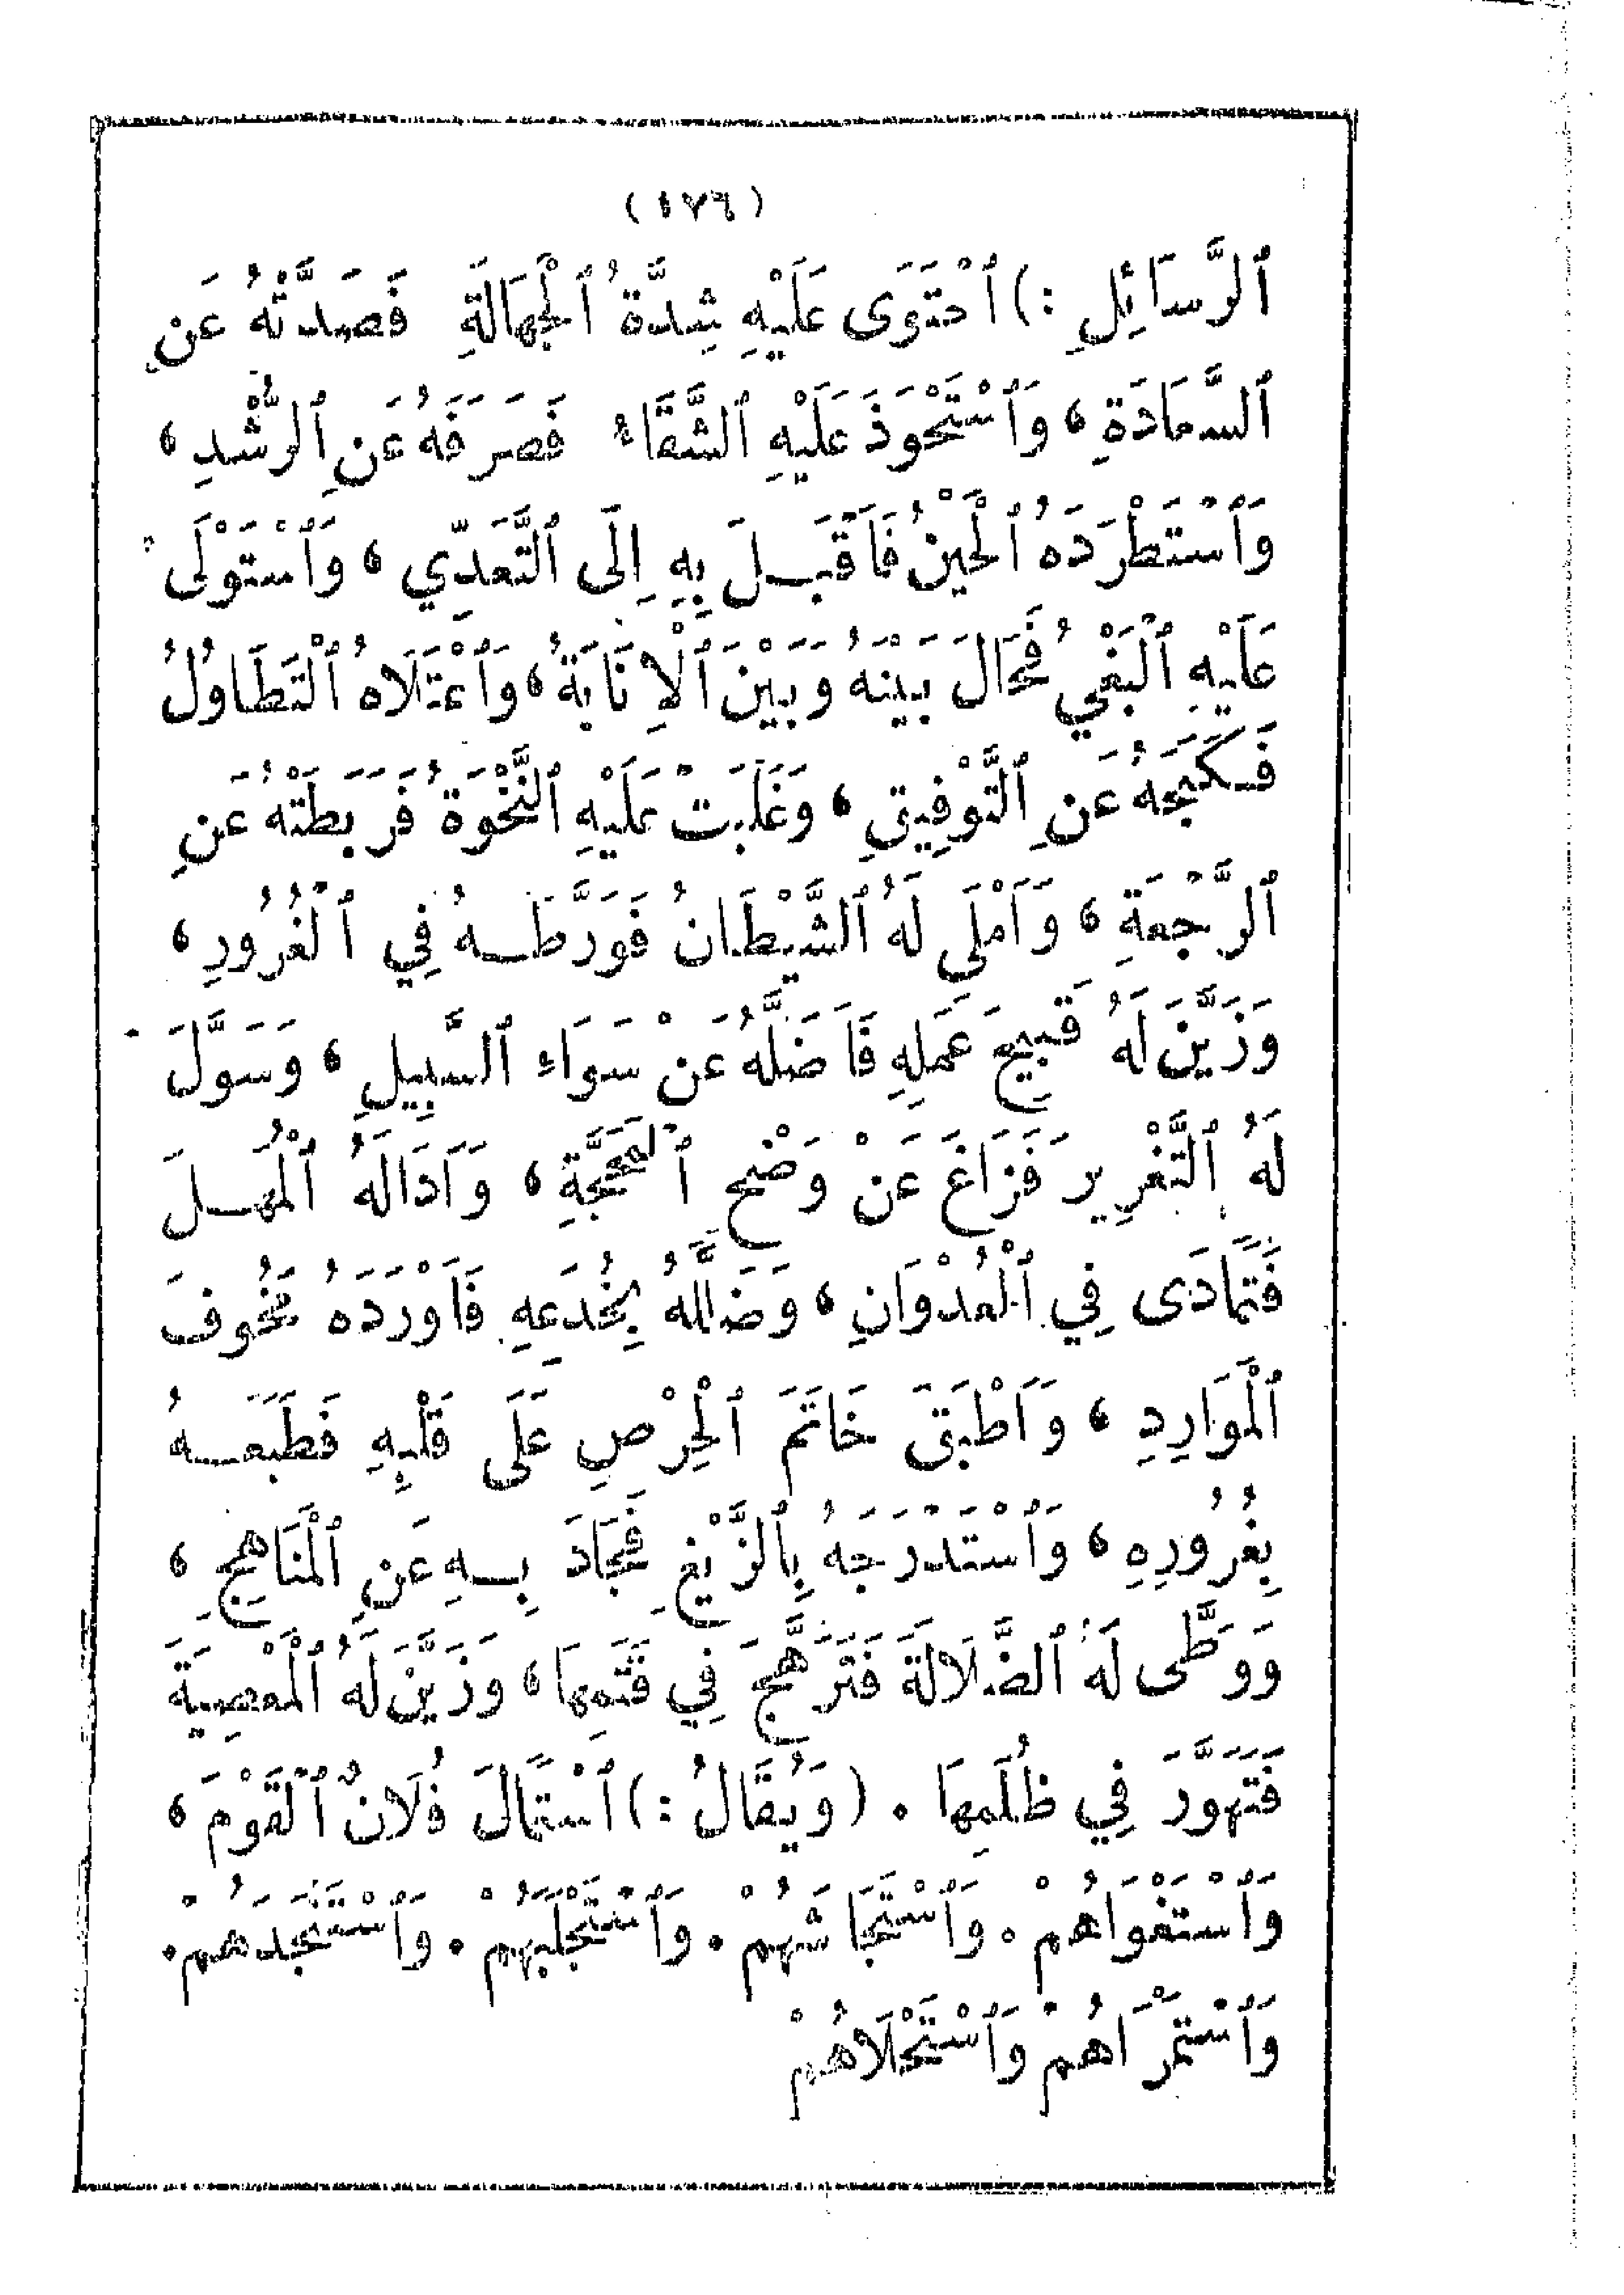 (١٧٦)
ٱلرَّسَائِلِ :) ٱحْتَوَى عَلَيْهِ شِدَّةُ ٱلْجَهَالَةِ فَصَدَّتْهُ عَنِ
ٱلسَّعَادَةِ، وَٱسْتَحْوَذَ عَلَيْهِ ٱلشَّقَاءُ فَصَرَفَهُ عَنِ ٱلرُّشْدِ،
وَٱسْتَطْرَدَهُ ٱلْحَيْنُ فَأَقْبَلَ بِهِ إِلَى ٱلتَّعَدِّي، وَٱسْتَوْلَى
عَلَيْهِ ٱلْبَغْيُ فَحَالَ بَيْنَهُ وَبَيْنَ ٱلْإِنَابَةِ، وَٱعْتَلَاهُ ٱلْتَطَاوُلُ
فَكَبَحَهُ عَنِ ٱلتَّوْفِيقِ، وَغَلَبَتْ عَلَيْهِ ٱلنَّخْوَةُ فَرَبَطَتْهُ عَنِ
ٱلرَّجْعَةِ، وَأَمْلَى لَهُ ٱلشَّيْطَانُ فَوَرَّطَهُ فِي ٱلْغُرُورِ،
وَزَيَّنَ لَهُ قَبِيحَ عَمَلِهِ فَأَضَلَّهُ عَنْ سَوَاءِ ٱلسَّبِيلِ، وَسَوَّلَ
لَهُ ٱلتَّغْرِيرَ فَزَاغَ عَنْ وَضْحِ ٱلْمَحَجَّةِ، وَأَدَالَهُ ٱلْمُهَلَ
فَتَمَادَى فِي ٱلْعُدْوَانِ، وَضَلَّلَهُ بِخُدَعِهِ فَأَوْرَدَهُ مَخُوفَ
ٱلْمَوَارِدِ، وَأَطْبَقَ خَاتَمَ ٱلْحِرْصِ عَلَى قَلْبِهِ فَطَبَعَهُ
بِغُرُورِهِ، وَٱسْتَدْرَجَهُ بِٱلزَّيْغِ فَجَادَ بِهِ عَنِ ٱلْمَنَاهِجِ،
وَوَطَّى لَهُ ٱلضَّلَالَةَ فَتَرَهَّجَ فِي قَتَمِهَا، وَزَيَّنَ لَهُ ٱلْمَعْصِيَةَ
فَتَهَوَّرَ فِي ظُلَمِهَا. (وَيُقَالُ :) ٱسْتَمَالَ فُلَانٌ ٱلْقَوْمَ،
وَٱسْتَغْوَاهُمْ. وَٱسْتَجَاشَهُمْ. وَٱسْتَجْلَبَهُمْ. وَٱسْتَنْجَدَهُمْ.
وَٱسْتَمْرَاهُمْ وَٱسْتَحْلَاهُمْ